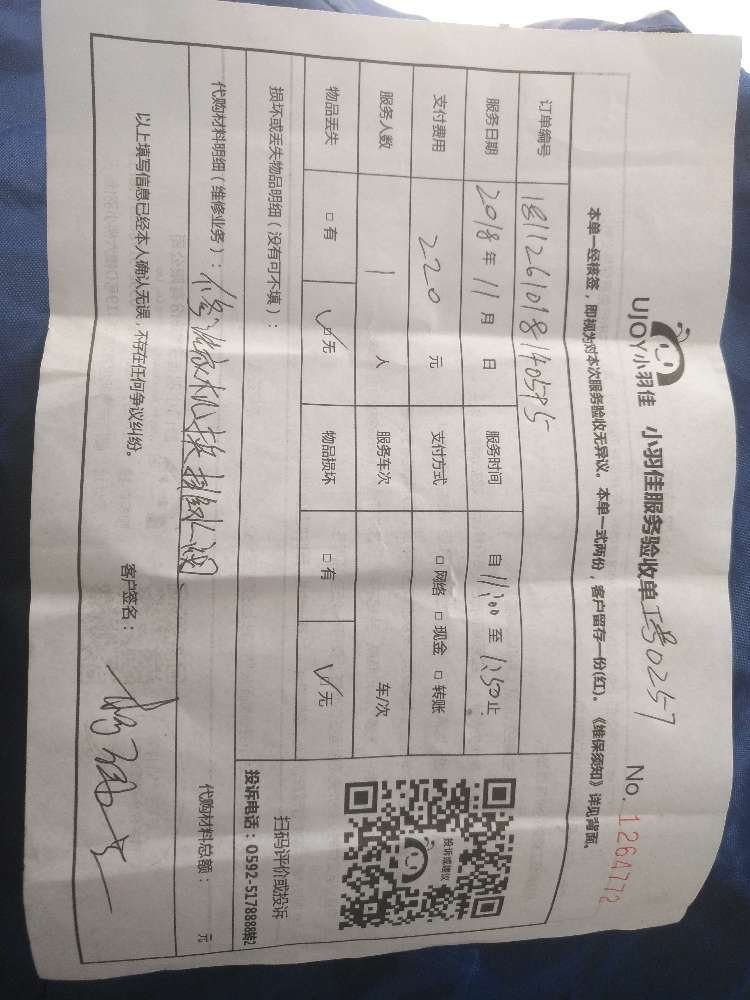 UJOY小羽佳 小羽佳服务验收单 工号0257 No. 1264772
本单一经核签，即视为对本次服务验收无异议。本单一式两份，客户留存一份(红)。《维保须知》详见背面。
订单编号
服务日期 2018年11月 日 服务时间 自 11:00 至 12:50 止
支付费用 220 元 支付方式 □ 网络 □ 现金 □ 转账
服务人数 1 人 服务车次 车/次
物品丢失 □ 有 ☑ 无 物品损坏 □ 有 ☑ 无
损坏或丢失物品明细（没有可不填）：
代购材料明细（维修业务）： 代购材料总额： 元
以上填写信息已经本人确认无误，不存在任何争议纠纷。 客户签名：
投诉或建议
扫码评价或投诉
投诉电话：0592-5178888转2